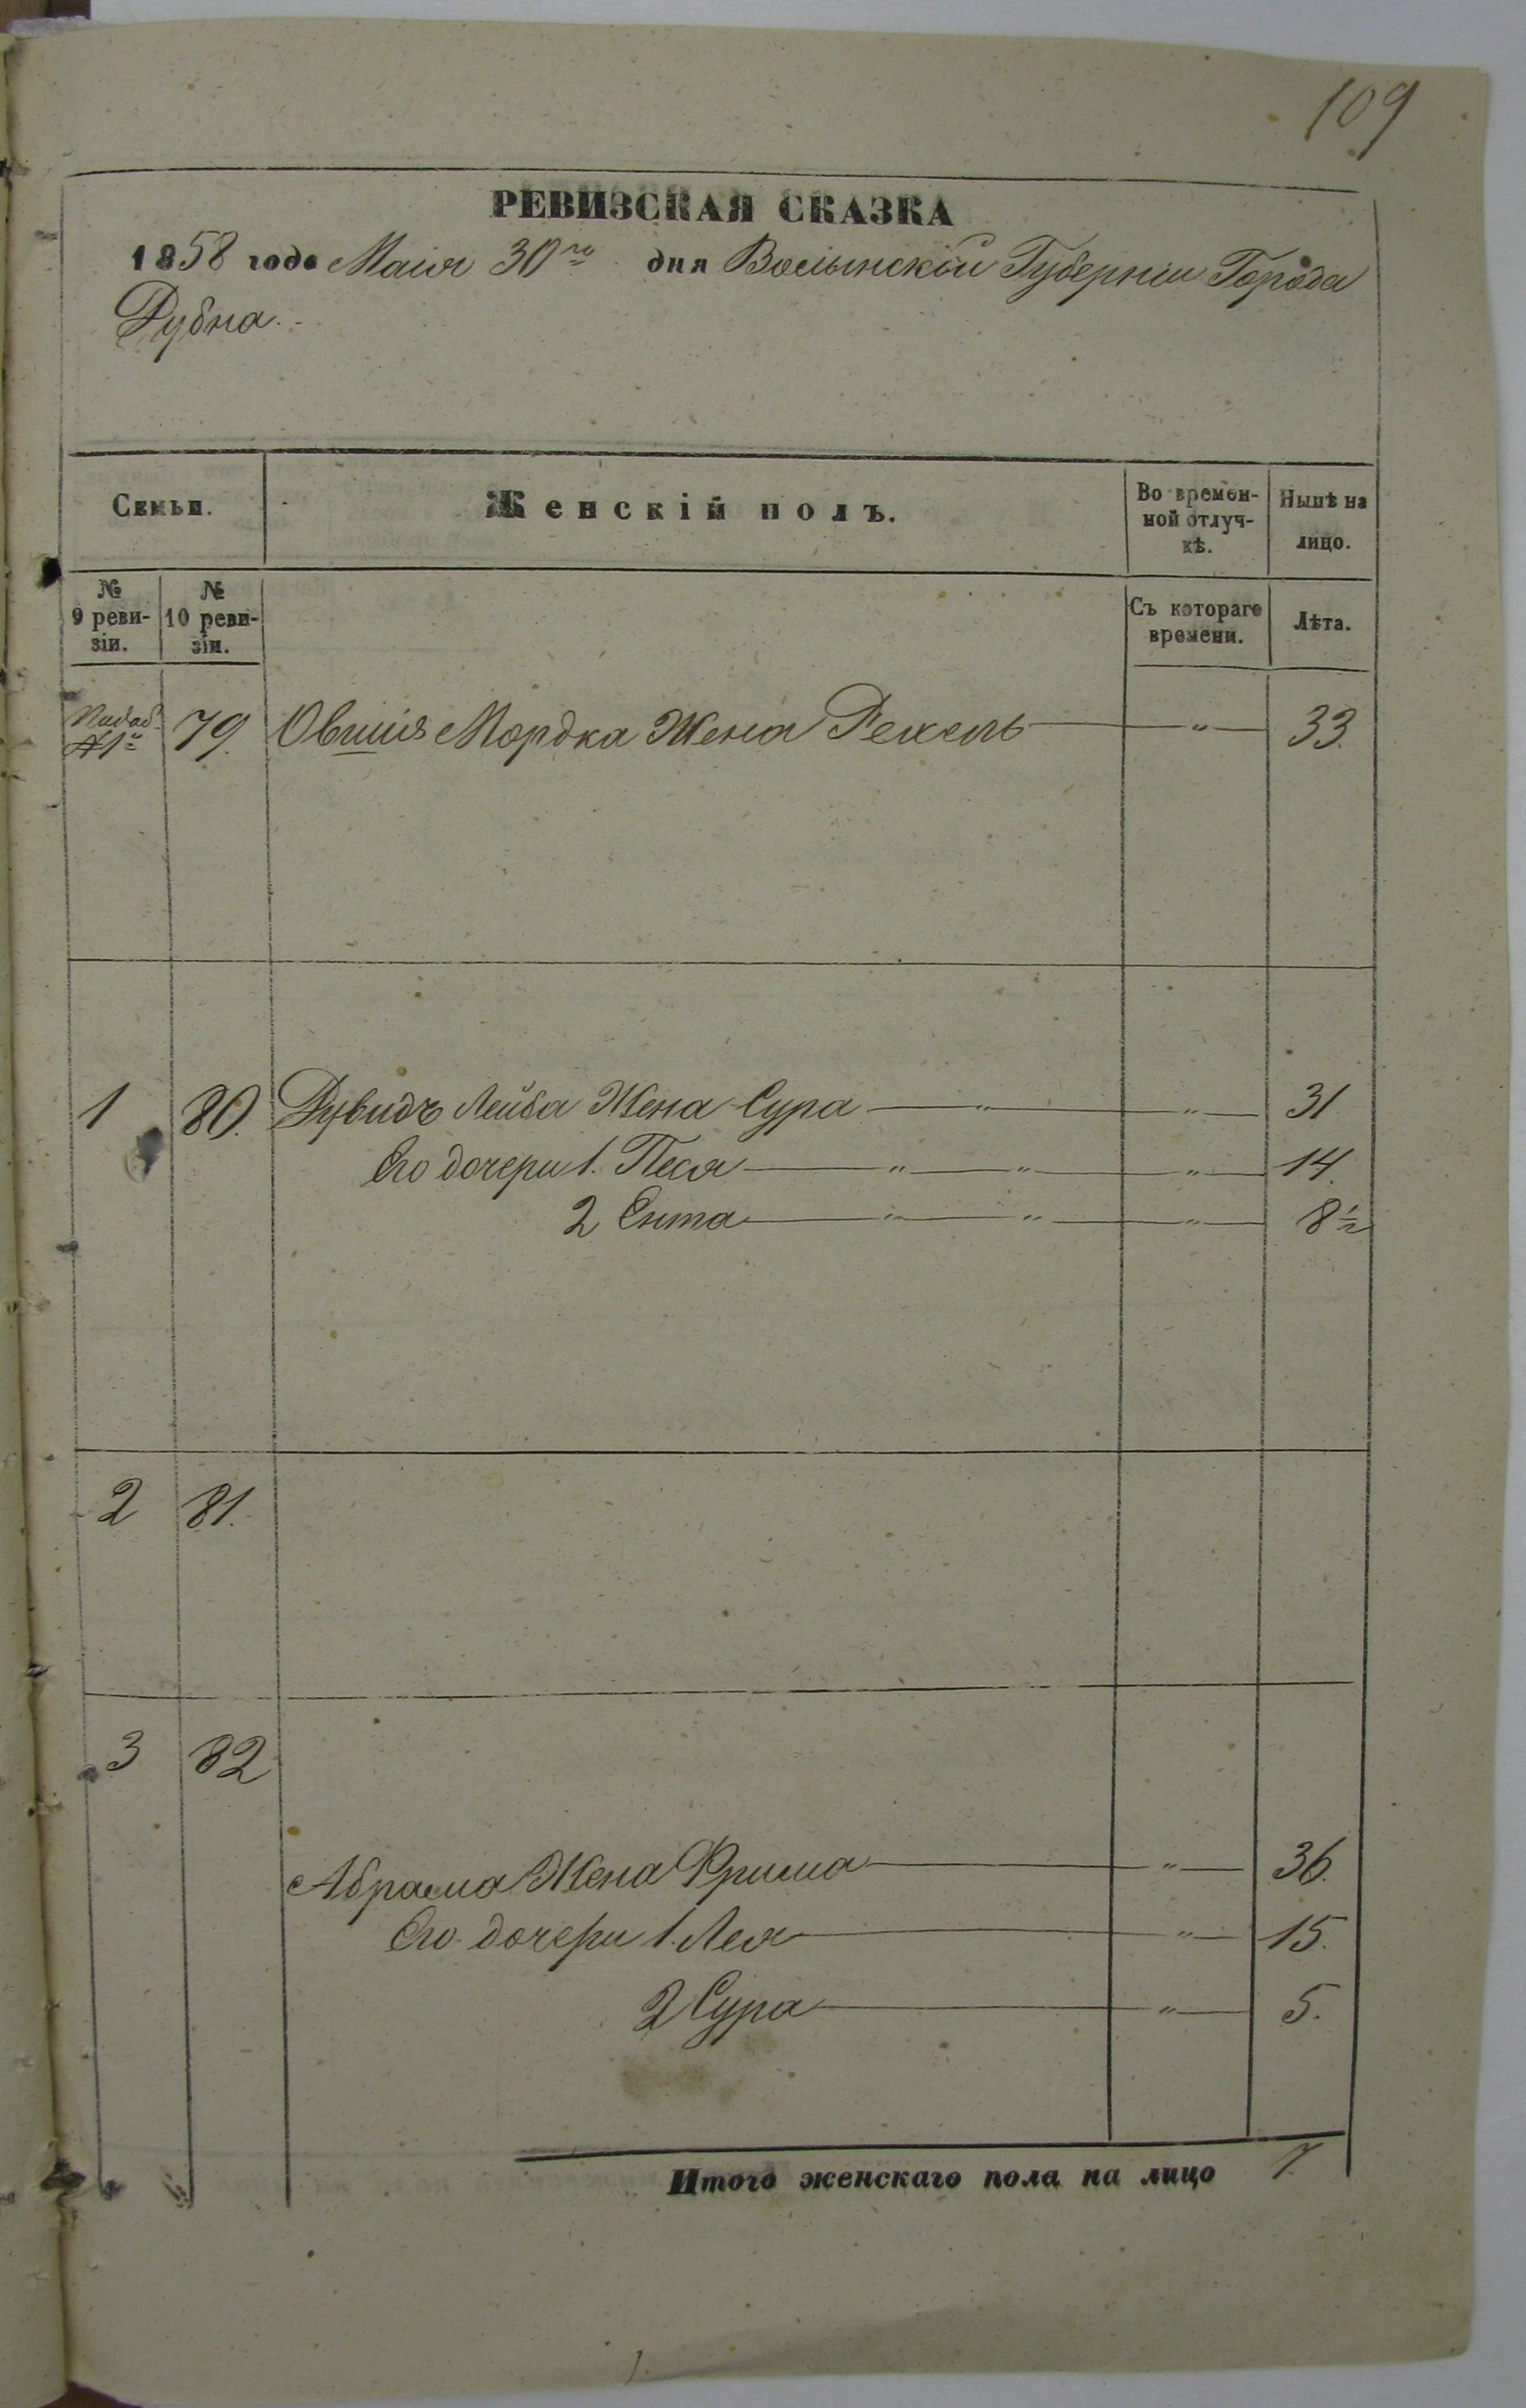 109
РЕВИЗСКАЯ СКАЗКА
1858 года Маія 30го дня Волынской Губерніи Города
Дубна.
Семьи.
Женскій полъ.
Во времен-
ной отлуч-
кѣ.
Ныпѣ на
лицо.
№
9 реви-
зіи.
№
10 реви-
зіи.
Съ котораго
времени.
Лѣта.
79. Овшія Мордка Жена Рехель — " — 33.
1 80. Дувидъ Лейба Жена Сура — " — " — 31
Его дочери 1. Песя — " — " — " — 14.
2 Ента — " — " — " — 8½
2 81.
3 82
Абрама Жена Фрима — " — 36.
Его дочери 1. Лея — " — 15.
2 Сура — " — 5.
Итого женскаго пола на лицо 7.